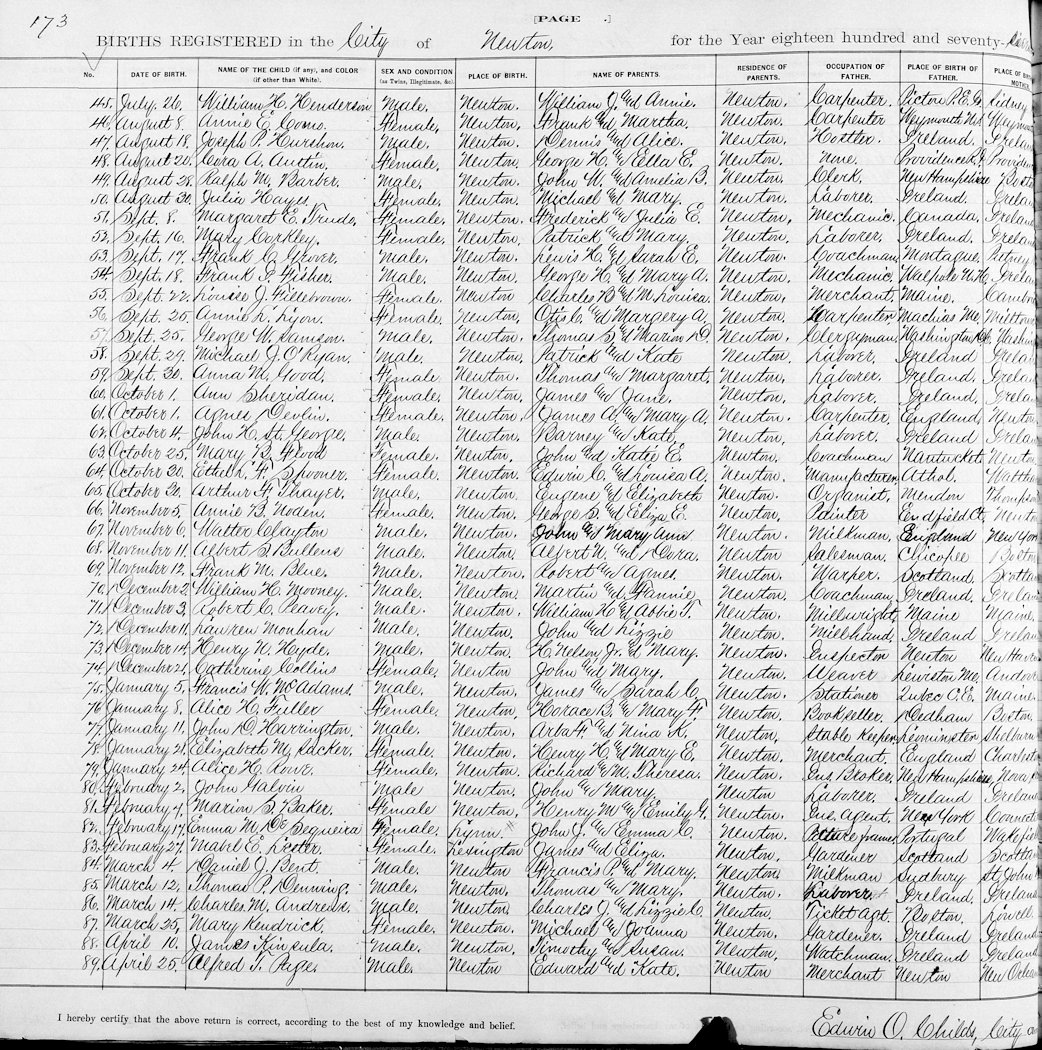 173
[PAGE .]
BIRTHS REGISTERED in the City of Newton, for the Year eighteen hundred and seventy-
No. DATE OF BIRTH. NAME OF THE CHILD (if any), and COLOR (if other than White). SEX AND CONDITION (as Twins, Illegitimate, &c.) PLACE OF BIRTH. NAME OF PARENTS. RESIDENCE OF PARENTS. OCCUPATION OF FATHER. PLACE OF BIRTH OF FATHER. PLACE OF BIRTH MOTHER.
45. July. 26. William H. Henderson Male. Newton. William J. and Annie. Newton. Carpenter. Pictou P.E.I. Sidney
46. August 8. Annie E. Female. Newton. Frank and Martha. Newton. Carpenter Weymouth N.S. Weymou
47. August 18. Joseph P. Male. Newton. Dennis and Alice. Newton. Hostler. Ireland. Irelan
48. August 20. Cora A. Austin. Female. Newton. George H. and Ella E. Newton. None. Providence R.I. Providen
49. August 28. Ralph M. Barber. Male. Newton. John W. and Amelia B. Newton. Clerk. New Hampshire Bosto
50. August 30. Julia Hayes. Female. Newton. Michael and Mary. Newton. Laborer. Ireland. Ireland
51. Sept. 8. Margaret E. Trudo. Female. Newton. Frederick and Julia E. Newton. Mechanic. Canada. Ireland
52. Sept. 16. Mary Corkley. Female. Newton. Patrick and Mary. Newton. Laborer. Ireland. Ireland
53. Sept. 17. Frank C. Grover. Male. Newton. Lewis H. and Sarah E. Newton. Coachman. Montague. Sidney
54. Sept. 18. Frank P. Fisher. Male. Newton. George H. and Mary A. Newton. Mechanic. Walpole N.H. Irelan
55. Sept. 22. Louise J. Fillebrown. Female. Newton Charles B. and M. Louisa. Newton. Merchant. Maine. Cambri
56. Sept. 25. Annie L. Lyon. Female. Newton. Otis C. and Margery A. Newton. Carpenter Machias Me. Milltow
57. Sept. 25. George W. Samson. Male. Newton. Thomas S. and Marion D. Newton. Clergyman. Washington D.C. Washin
58. Sept. 29. Michael J. O'Ryan. Male. Newton. Patrick and Kate Newton. Laborer. Ireland Irelan
59. Sept. 30. Anna M. Good. Female Newton. Thomas and Margaret. Newton. Laborer. Ireland. Irelan
60. October 1. Ann Sheridan. Female. Newton. James and Jane. Newton. Laborer. Ireland. Irelan
61. October 1. Agnes Devlin. Female. Newton. James A. and Mary A. Newton. Carpenter. England. Newton
62. October 4. John H. St. George. Male. Newton. Barney and Kate. Newton. Laborer. Ireland Irelan
63. October 25. Mary B. Flood Female. Newton. John and Katie E. Newton. Coachman Nantucket. Newton
64. October 20. Ethel F. Spooner. Female. Newton. Edwin C. and Louisa A. Newton. Manufacturer. Athol. Waltha
65. October 30. Arthur F. Thayer. Male. Newton. Eugene and Elizabeth Newton. Organist. Mendon Thompso
66. November 5. Annie B. Noden. Female. Newton. George S. and Eliza E. Newton. Painter Enfield Ct. Newton
67. November 6. Walter Clayton Male. Newton. John and Mary Ann Newton. Milkman. England New York
68. November 11. Albert S. Bullens Male. Newton. Albert N. and Dora. Newton. Salesman. Chicopee Boston
69. November 12. Frank M. Blue. Male. Newton. Robert and Agnes. Newton. Warper. Scotland. Scotlan
70. December 2. William H. Mooney. Male. Newton. Martin and Fannie. Newton. Coachman. Ireland. Irelan
71. December 3. Robert C. Peavey. Male. Newton. William H. and Abbie T. Newton. Millwright. Maine Maine.
72. December 11. Lawren Monhan Male. Newton. John and Lizzie Newton. Millhand. Ireland Irelan
73. December 14. Henry N. Hyde. Male. Newton. H. Nelson Jr. and Mary. Newton. Inspector Newton New Haven
74. December 21. Catherine Collins Female Newton. John and Mary. Newton. Weaver Lewiston Me. Andove
75. January 5. Francis W. McAdams. Male. Newton. James and Sarah C. Newton. Stationer Qubec C.E. Maine.
76 January 8. Alice H. Fuller Female. Newton. Horace B. and Mary F. Newton. Bookseller. Dedham Boston.
77. January 11. John D. Harrington. Male. Newton. Arba F. and Nina K. Newton. Stable Keeper Leominster Shelburn
78. January 21. Elizabeth M. Packer. Female. Newton. Henry H. and Mary E. Newton. Merchant. England Charlesto
79. January 24. Alice H. Rowe. Female. Newton. Richard and M. Theresa. Newton. Ins. Broker. New Hampshire, Nova
80. February 2. John Galvin Male Newton. John and Mary. Newton. Laborer. Ireland Ireland
81. February 4. Marion S. Baker. Female Newton. Henry M. and Emily G. Newton. Ins. Agent. New York Connect
82. February 17. Emma M. De Sequeira Female. Lynn. John J. and Emma C. Newton. Picture frames. Portugal Wakefield
83. February 27. Mabel E. Lester. Female. Lexington James and Eliza. Newton. Gardener Scotland Scotlan
84. March 4. Daniel J. Bent. Male. Newton Francis P. and Mary. Newton. Milkman Sudbury St. John
85. March 12. Thomas P. Denning. Male. Newton. Thomas and Mary. Newton. Laborer Ireland. Ireland
86. March 14. Charles M. Andrews. Male. Newton. Charles J. and Lizzie C. Newton. Ticket agt. Boston. Lowell.
87. March 25. Mary Kendrick. Female. Newton. Michael and Joanna Newton. Gardener. Ireland Ireland
88. April 10. James Kinsula. Male. Newton. Timothy and Susan. Newton. Watchman. Ireland Ireland
89. April 25. Alfred T. Page. Male. Newton Edward and Kate. Newton Merchant Newton New Orlean
I hereby certify that the above return is correct, according to the best of my knowledge and belief.
Edwin O. Childs, City